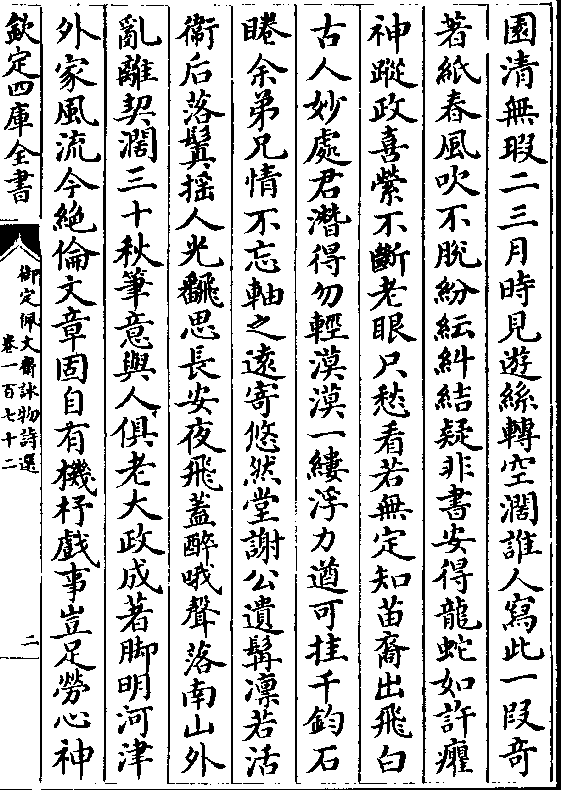 園清無瑕二三月時見遊絲轉空闊誰人寫此一段奇
著紙春風吹不脫紛紜糾結疑非書安得龍蛇如許癯
神蹤政喜縈不斷老眼只愁看若無定知苗裔出飛白
古人妙處君潛得勿輕漠漠一縷浮力遒可挂千鈞石
睠余弟兄情不忘軸之遠寄悠然堂謝公遺髯凛若活
衞后落鬒搖人光翻思長安夜飛蓋醉哦聲落南山外
亂離契闊三十秋筆意與人俱老大政成著脚明河津
外家風流今絶倫文章固自有機杼戲事豈足勞心神
欽定四庫全書
御定佩文齋詠物詩選
卷一百七十二
二